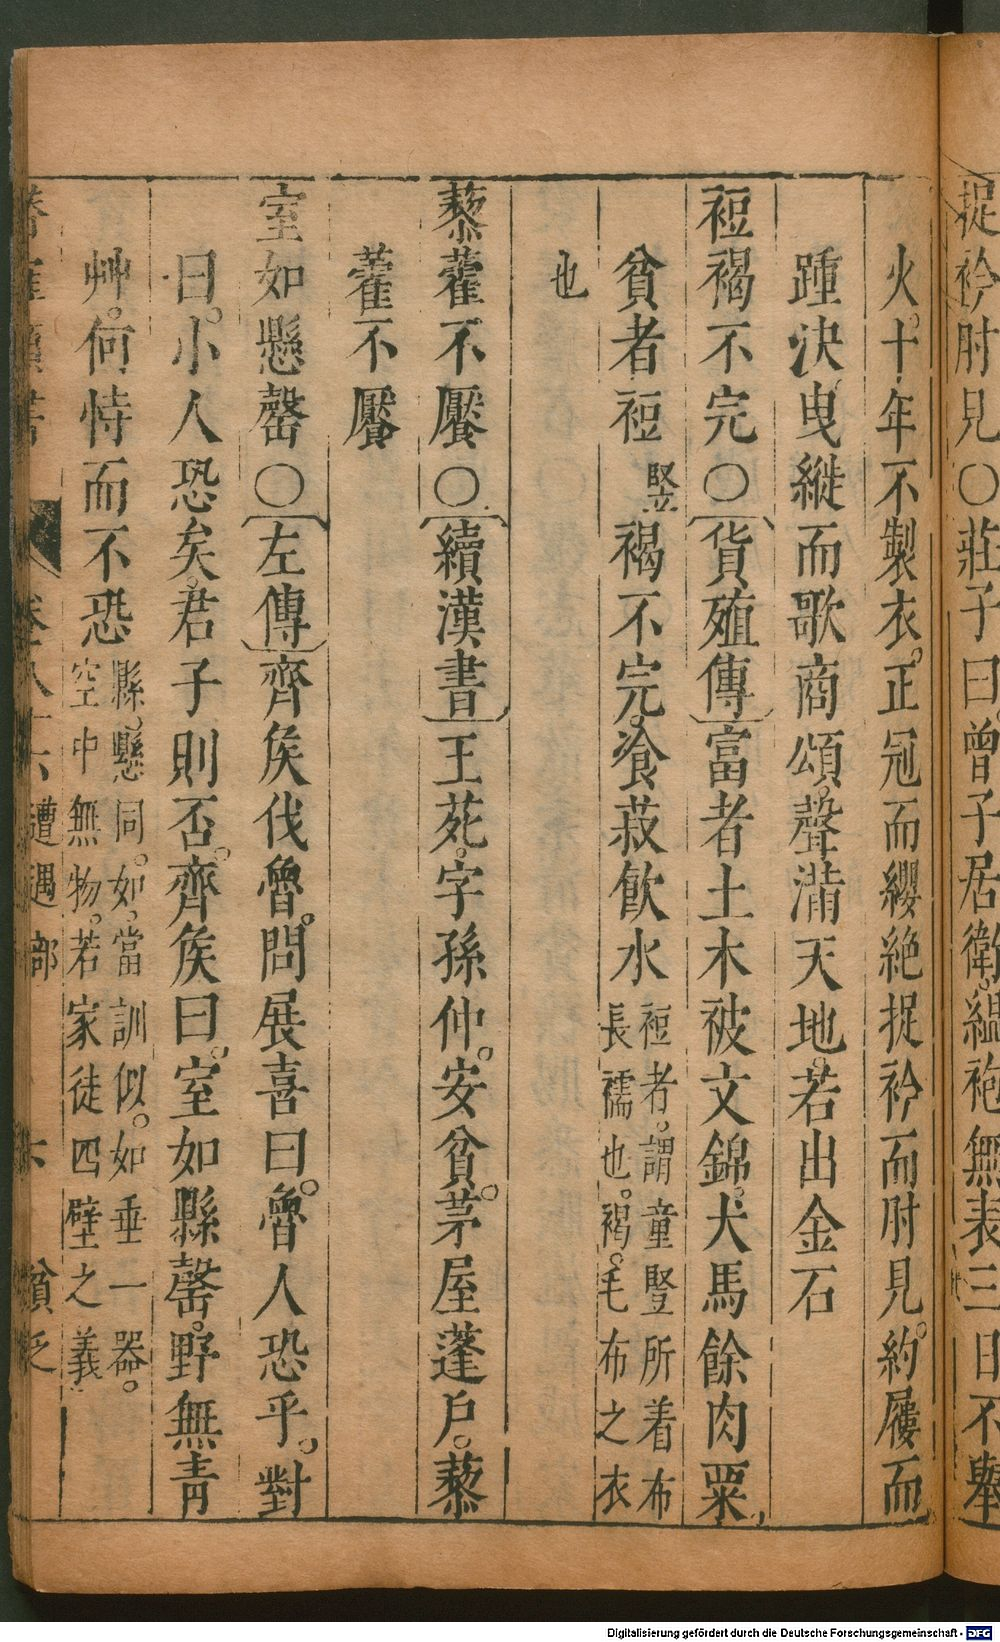 捉衿肘見○莊子曰曾子居衛縕袍無表三日不舉
火十年不製衣正冠而纓絶捉衿而肘見約屨而
踵決曳縰而歌商頌聲滿天地若出金石
裋褐不完○貨殖傳富者土木被文錦犬馬餘肉粟
貧者裋竪褐不完飡菽飲水裋者謂童豎所着布長襦也褐毛布之衣
也
藜藿不饜○續漢書王苑字孫仲安貧茅屋蓬戶藜
藿不饜
室如懸罄○左傳齊矦伐魯問展喜曰魯人恐乎對
曰小人恐矣君子則否齊矦曰室如縣罄野無青
艸何恃而不恐縣懸同如當訓似如垂一器空中無物若家徒四壁之義
卷八十六遭遇部 六 貧乏
Digitalisierung gefördert durch die Deutsche Forschungsgemeinschaft - DFG